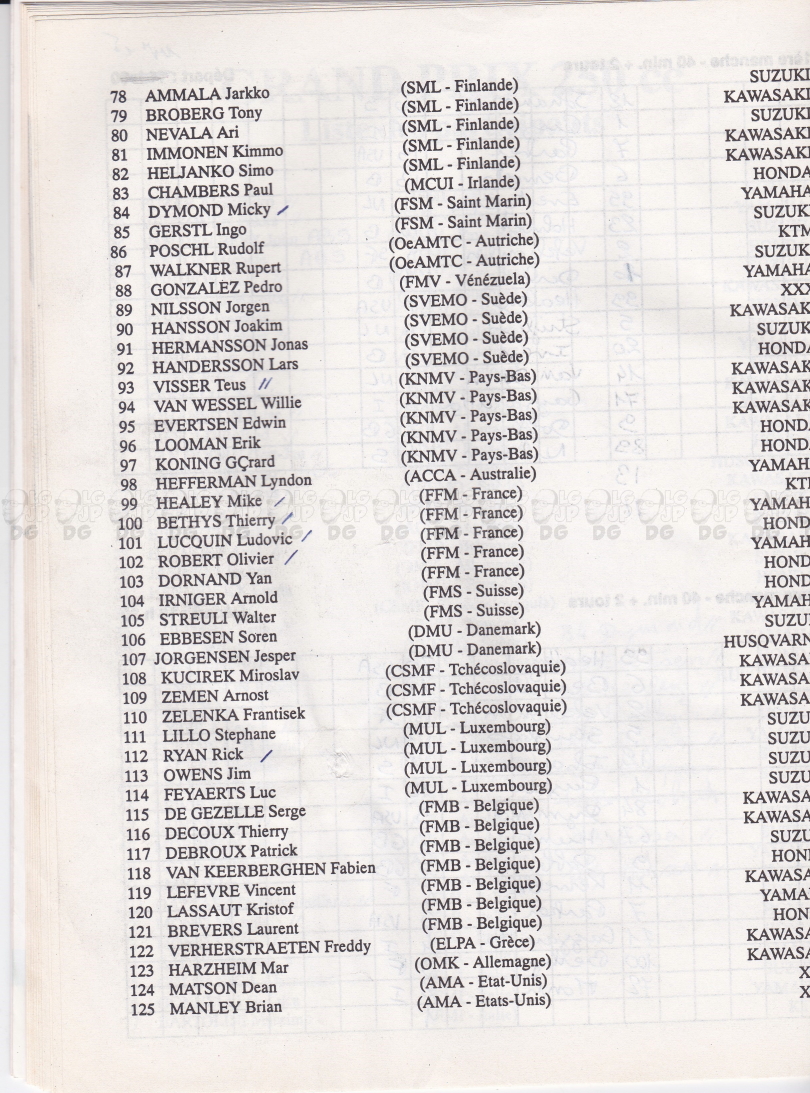 78 AMMALA Jarkko (SML - Finlande) SUZUKI
79 BROBERG Tony (SML - Finlande) KAWASAKI
80 NEVALA Ari (SML - Finlande) SUZUKI
81 IMMONEN Kimmo (SML - Finlande) KAWASAKI
82 HELJANKO Simo (SML - Finlande) KAWASAKI
83 CHAMBERS Paul (MCUI - Irlande) HONDA
84 DYMOND Micky (FSM - Saint Marin) YAMAHA
85 GERSTL Ingo (FSM - Saint Marin) SUZUKI
86 POSCHL Rudolf (OeAMTC - Autriche) KTM
87 WALKNER Rupert (OeAMTC - Autriche) SUZUK
88 GONZALEZ Pedro (FMV - Vénézuela) YAMAHA
89 NILSSON Jorgen (SVEMO - Suède) XXX
90 HANSSON Joakim (SVEMO - Suède) KAWASAK
91 HERMANSSON Jonas (SVEMO - Suède) SUZUK
92 HANDERSSON Lars (SVEMO - Suède) HOND
93 VISSER Teus (KNMV - Pays-Bas) KAWASAK
94 VAN WESSEL Willie (KNMV - Pays-Bas) KAWASAK
95 EVERTSEN Edwin (KNMV - Pays-Bas) KAWASAK
96 LOOMAN Erik (KNMV - Pays-Bas) HOND
97 KONING GÇrard (KNMV - Pays-Bas) HOND
98 HEFFERMAN Lyndon (ACCA - Australie) YAMAH
99 HEALEY Mike (FFM - France) KT
100 BETHYS Thierry (FFM - France) YAMAH
101 LUCQUIN Ludovic (FFM - France) HOND
102 ROBERT Olivier (FFM - France) YAMAH
103 DORNAND Yan (FFM - France) HOND
104 IRNIGER Arnold (FMS - Suisse) HOND
105 STREULI Walter (FMS - Suisse) YAMAH
106 EBBESEN Soren (DMU - Danemark) SUZU
107 JORGENSEN Jesper (DMU - Danemark) HUSQVARN
108 KUCIREK Miroslav (CSMF - Tchécoslovaquie) KAWASA
109 ZEMEN Arnost (CSMF - Tchécoslovaquie) KAWASA
110 ZELENKA Frantisek (CSMF - Tchécoslovaquie) KAWASA
111 LILLO Stephane (MUL - Luxembourg) SUZU
112 RYAN Rick (MUL - Luxembourg) SUZU
113 OWENS Jim (MUL - Luxembourg) SUZU
114 FEYAERTS Luc (MUL - Luxembourg) SUZU
115 DE GEZELLE Serge (FMB - Belgique) KAWASA
116 DECOUX Thierry (FMB - Belgique) KAWASA
117 DEBROUX Patrick (FMB - Belgique) SUZU
118 VAN KEERBERGHEN Fabien (FMB - Belgique) HON
119 LEFEVRE Vincent (FMB - Belgique) KAWASA
120 LASSAUT Kristof (FMB - Belgique) YAMA
121 BREVERS Laurent (FMB - Belgique) HON
122 VERHERSTRAETEN Freddy (ELPA - Grèce) KAWASA
123 HARZHEIM Mar (OMK - Allemagne) KAWASA
124 MATSON Dean (AMA - Etat-Unis) X
125 MANLEY Brian (AMA - Etats-Unis) X